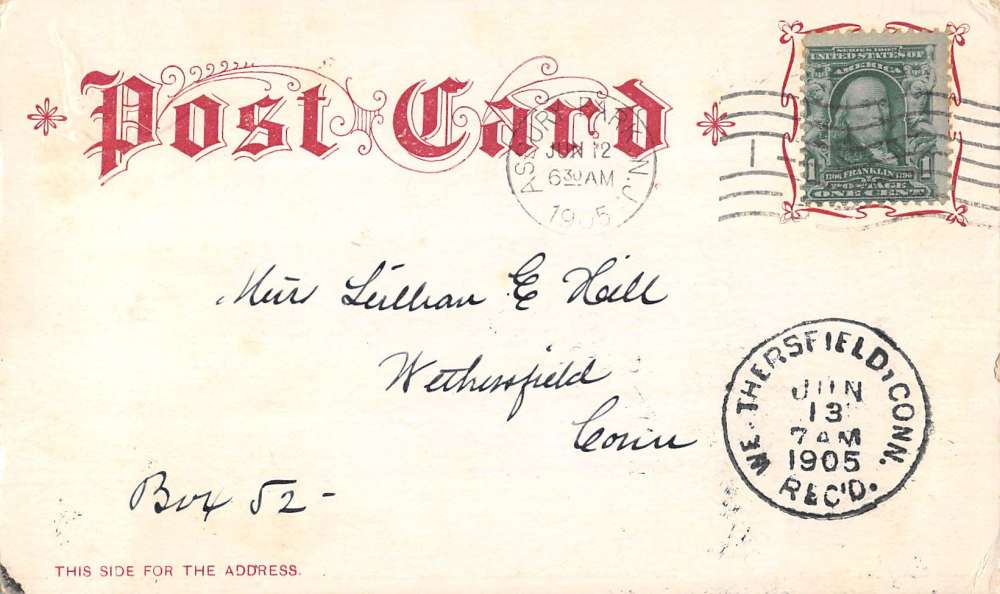 Post Card
ASBURY PARK, N.J.
JUN 12
6 30 AM
1905
SERIES 1902
UNITED STATES OF
AMERICA
1706 FRANKLIN 1790
1 1
POSTAGE
ONE CENT
Miss Lillian E Hall
Wethersfield
Conn
Box 52-
WETHERSFIELD, CONN.
JUN
13
7 AM
1905
REC'D.
THIS SIDE FOR THE ADDRESS.